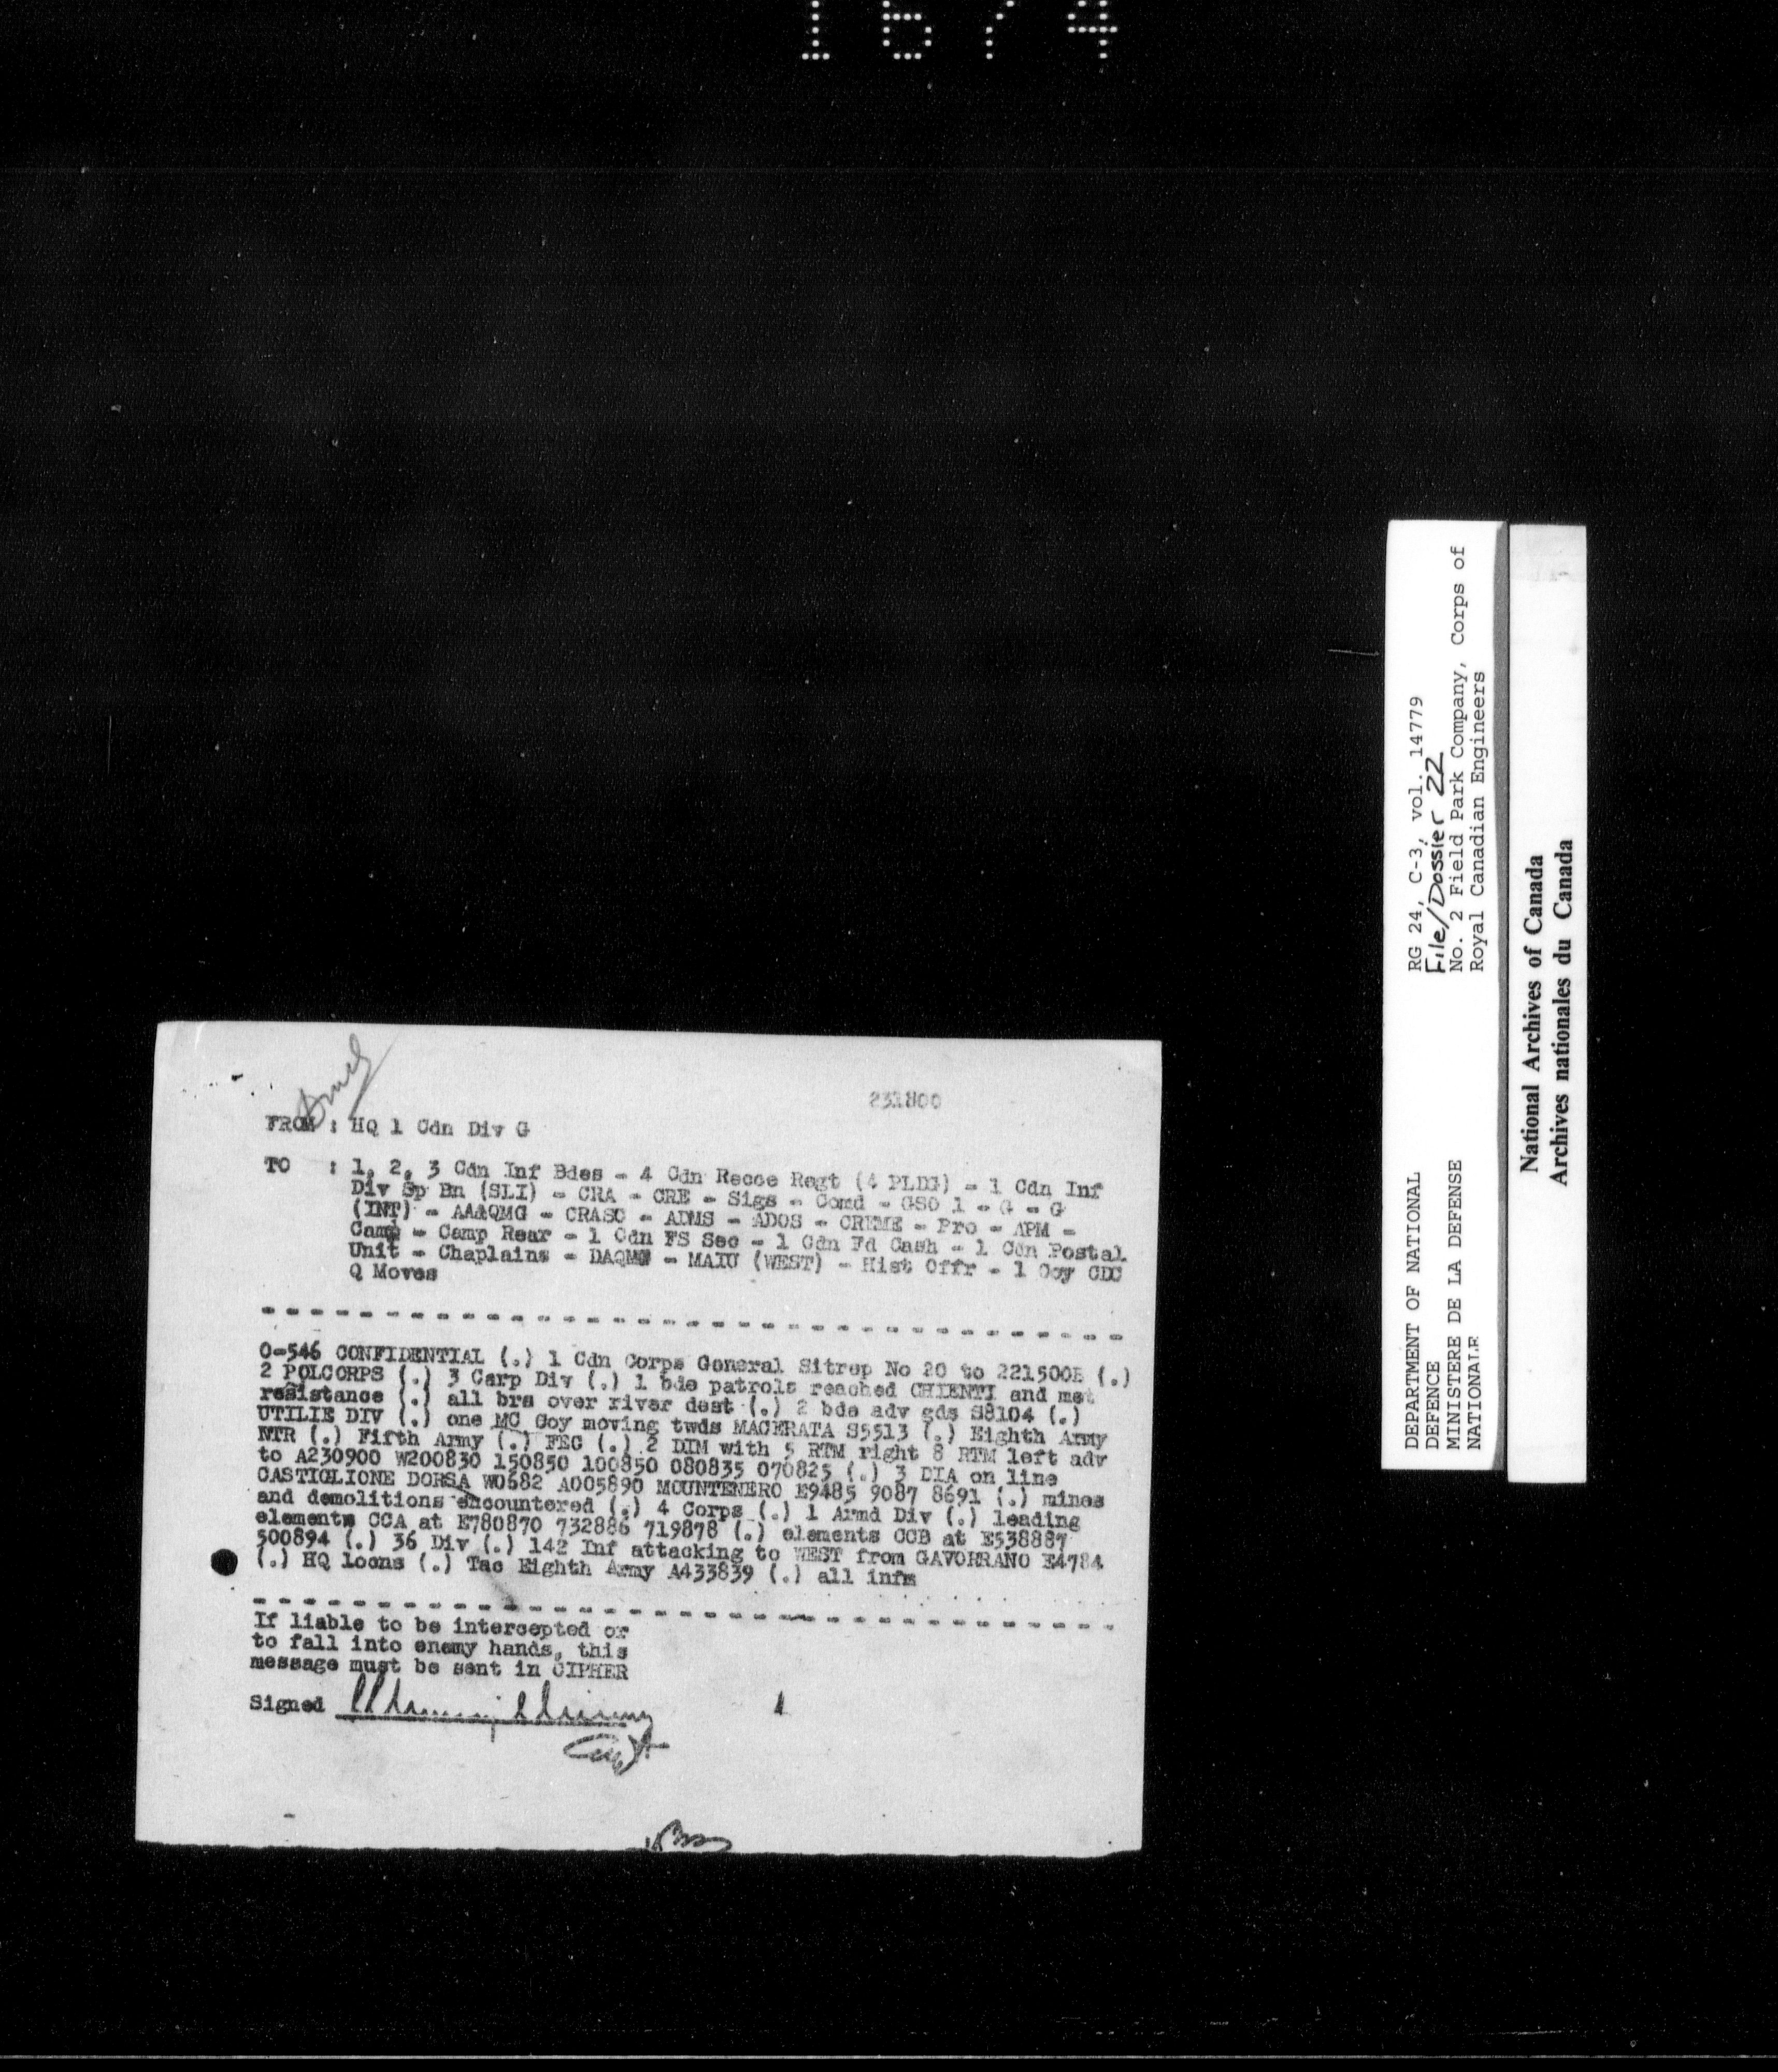 1674
231800
FROM : HQ 1 Cdn Div G
TO : 1, 2, 3 Cdn Inf Bdes - 4 Cdn Recce Regt (4 PLDG) - 1 Cdn Inf
Div Sp Bn (SLI) - CRA - CRE - Sigs - Comd - GSO 1 - G - G
(INT) - AA&QMG - CRASC - ADMS - ADOS - CREME - Pro - APM -
Camp - Camp Rear - 1 Cdn FS Sec - 1 Cdn Fd Cash - 1 Cdn Postal
Unit - Chaplains - DAQMG - MAIU (WEST) - Hist Offr - 1 Coy CDC
Q Moves
O-546 CONFIDENTIAL (.) 1 Cdn Corps General Sitrep No 20 to 221500B (.)
2 POLCORPS (.) 3 Carp Div (.) 1 bde patrols reached CHIENTI and met
resistance (.) all brs over river dest (.) 2 bde adv gds S8104 (.)
UTILIE DIV (.) one MC Coy moving twds MACERATA S5513 (.) Eighth Army
NTR (.) Fifth Army (.) FEC (.) 2 DIM with 5 RTM right 8 RTM left adv
to A230900 W200830 150850 100850 080835 070825 (.) 3 DIA on line
CASTIGLIONE DORSA W0682 A005890 MOUNTENERO E9485 9087 8691 (.) mines
and demolitions encountered (.) 4 Corps (.) 1 Armd Div (.) leading
elements CCA at E780870 732886 719878 (.) elements CCB at E538887
500894 (.) 36 Div (.) 142 Inf attacking to WEST from GAVORRANO E4784
(.) HQ locns (.) Tac Eighth Army A433839 (.) all infm
If liable to be intercepted or
to fall into enemy hands, this
message must be sent in CIPHER
Signed
Capt
DEPARTMENT OF NATIONAL
DEFENCE
MINISTERE DE LA DEFENSE
NATIONALE
RG 24, C-3, vol. 14779
File/Dossier 22
No. 2 Field Park Company, Corps of
Royal Canadian Engineers
National Archives of Canada
Archives nationales du Canada